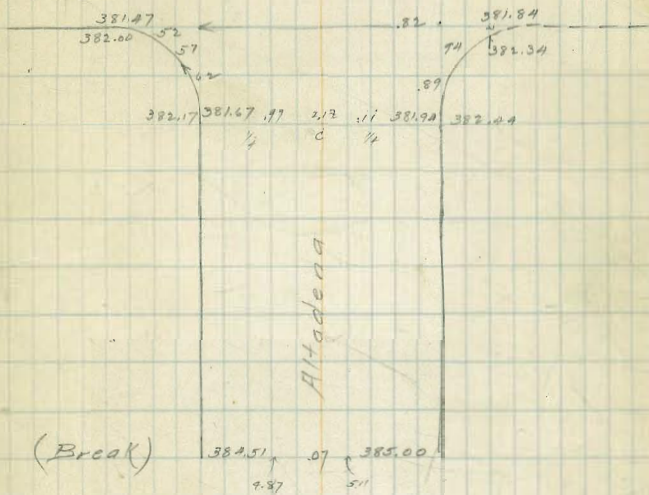 381.47 .82 381.84
382.00 52 382.34
57 94
62 .89
382.17 381.67 .97 2.17 .11 381.94 382.44
¼ C ¼
Altadena
(Break) 384.51 .07 385.00
4.87 5.11